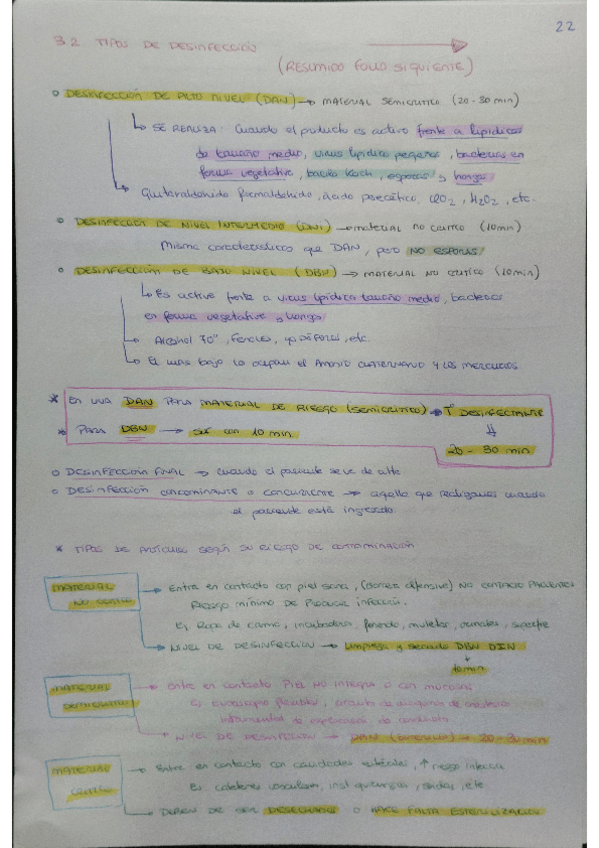 22
3.2 TIPOS DE DESINFECCIÓN
(RESUMIDO FOLIO SIGUIENTE)
DESINFECCIÓN DE ALTO NIVEL (DAN) → MATERIAL SEMICRITICO (20-30 min)
SE REALIZA: Cuando el producto es activo frente a lipidicos
de tamaño medio, virus lipidico pequeños, bacterias en
forma vegetativa, bacilo Koch, esporas y hongos
Glutaraldehido formaldehido, ácido peracético, ClO2, H2O2, etc.
DESINFECCIÓN DE NIVEL INTERMEDIO (DNI) → material no critico (10 min)
Misma características que DAN, pero NO ESPORAS
DESINFECCIÓN DE BAJO NIVEL (DBN) → MATERIAL NO CRITICO (10 min)
Es active frente a virus lipidico tamaño medio, bacterias
en forma vegetativa y hongos
Alcohol 70°, Fenoles, yodóforos, etc.
El mas bajo lo ocupan el Amonio cuaternario y los mercuriales
* EN UNA DAN PARA MATERIAL DE RIESGO (SEMICRITICO) → Tº DESINFECTANTE
* PARA DBN → con 10 min
20-30 min
DESINFECCIÓN FINAL → cuando el paciente se ve de alta
DESINFECCIÓN concominante o concurrente → aquella que realizamos cuando
el paciente está ingresado.
* TIPOS DE ARTICULOS SEGÚN SU RIESGO DE CONTAMINACIÓN
MATERIAL NO CRITICO → Entra en contacto con piel sana, (barrera defensiva) NO CONTACTO
Riesgo mínimo DE PRODUCIR infección.
Ej Ropa de cama, incubadora, fonendo, muletas,
NIVEL DE DESINFECCIÓN → Limpieza y secado DBN DIN
10 min
MATERIAL SEMICRITICO → Entra en contacto PIEL NO INTEGRA o con mucosas
Ej endoscopio flexibles, circuito de maquinas de anestesia
instrumental de exploración de
NIVEL DE DESINFECCIÓN → DAN 20-30 min
MATERIAL CRITICO → Entra en contacto con cavidades estériles, ↑ riesgo infección
Ej catéteres vasculares, inst quirurgico, sondas, etc
DEBEN DE SER DESECHADOS O HACE FALTA ESTERILIZACION